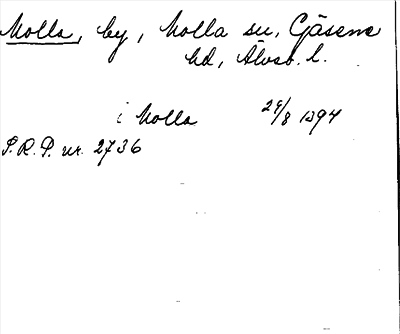 Molla, by, Molla sn, Gäsene
hd, Älvsb. l.
i Molla 24/8 1394
S.R.P. nr. 2736